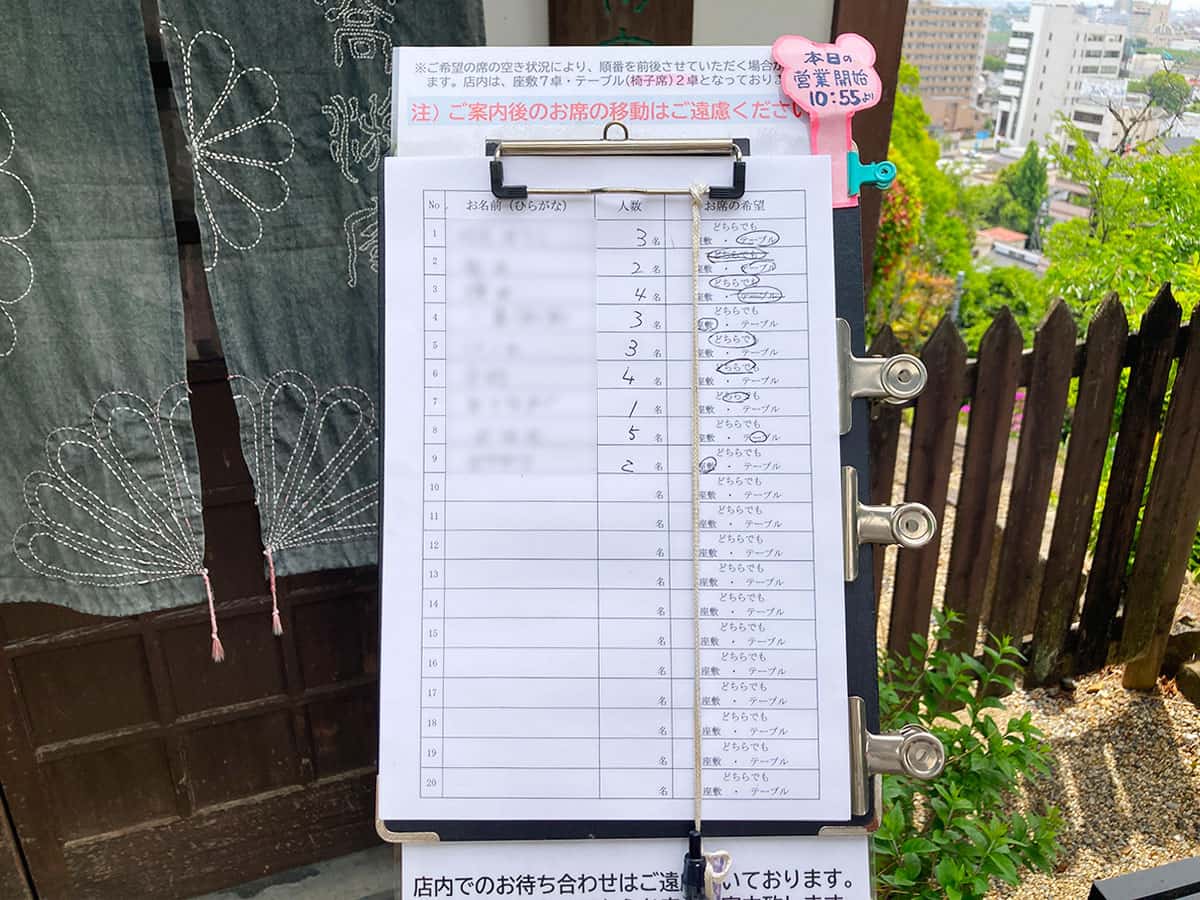 ※ご希望の席の空き状況により、順番を前後させていただく場合が
ます。店内は、座敷7卓・テーブル(椅子席)2卓となっており
注）ご案内後のお席の移動はご遠慮くださ
本日の
営業開始
10:55より
No. お名前（ひらがな） 人数 お席の希望
1 3名 どちらでも
座敷 ・ テーブル
2 2名 どちらでも
座敷 ・ テーブル
3 4名 どちらでも
座敷 ・ テーブル
4 3名 どちらでも
座敷 ・ テーブル
5 3名 どちらでも
座敷 ・ テーブル
6 4名 どちらでも
座敷 ・ テーブル
7 1名 どちらでも
座敷 ・ テーブル
8 5名 どちらでも
座敷 ・ テーブル
9 2名 どちらでも
座敷 ・ テーブル
10 名 どちらでも
座敷 ・ テーブル
11 名 どちらでも
座敷 ・ テーブル
12 名 どちらでも
座敷 ・ テーブル
13 名 どちらでも
座敷 ・ テーブル
14 名 どちらでも
座敷 ・ テーブル
15 名 どちらでも
座敷 ・ テーブル
16 名 どちらでも
座敷 ・ テーブル
17 名 どちらでも
座敷 ・ テーブル
18 名 どちらでも
座敷 ・ テーブル
19 名 どちらでも
座敷 ・ テーブル
20 名 どちらでも
座敷 ・ テーブル
店内でのお待ち合わせはご遠 いております。